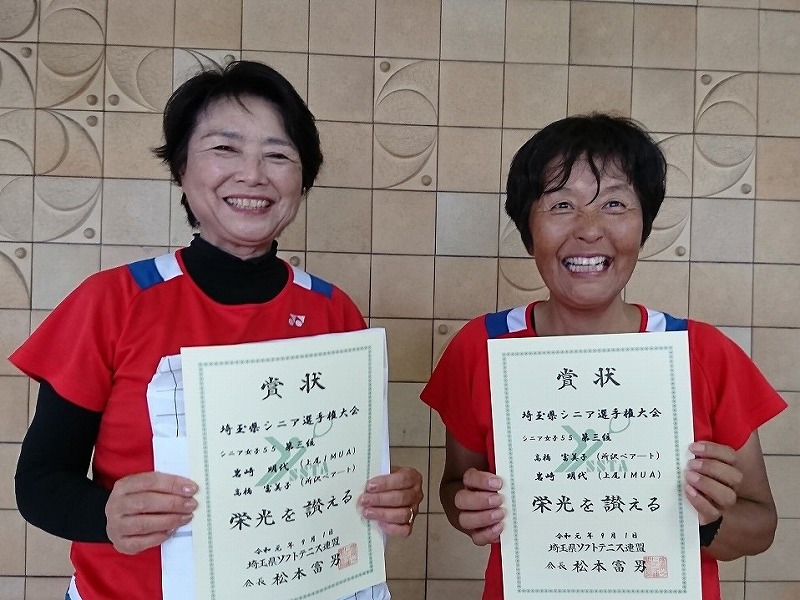 賞状
埼玉県シニア選手権大会
シニア女子55 第三位
岩崎 明代 (上尾IMUA)
高橋 富美子 (所沢ペアート)
栄光を讃える
令和元年9月1日
埼玉県ソフトテニス連盟
会長 松本富男
賞状
埼玉県シニア選手権大会
シニア女子55 第三位
高橋 富美子 (所沢ペアート)
岩崎 明代 (上尾IMUA)
栄光を讃える
令和元年9月1日
埼玉県ソフトテニス連盟
会長 松本富男